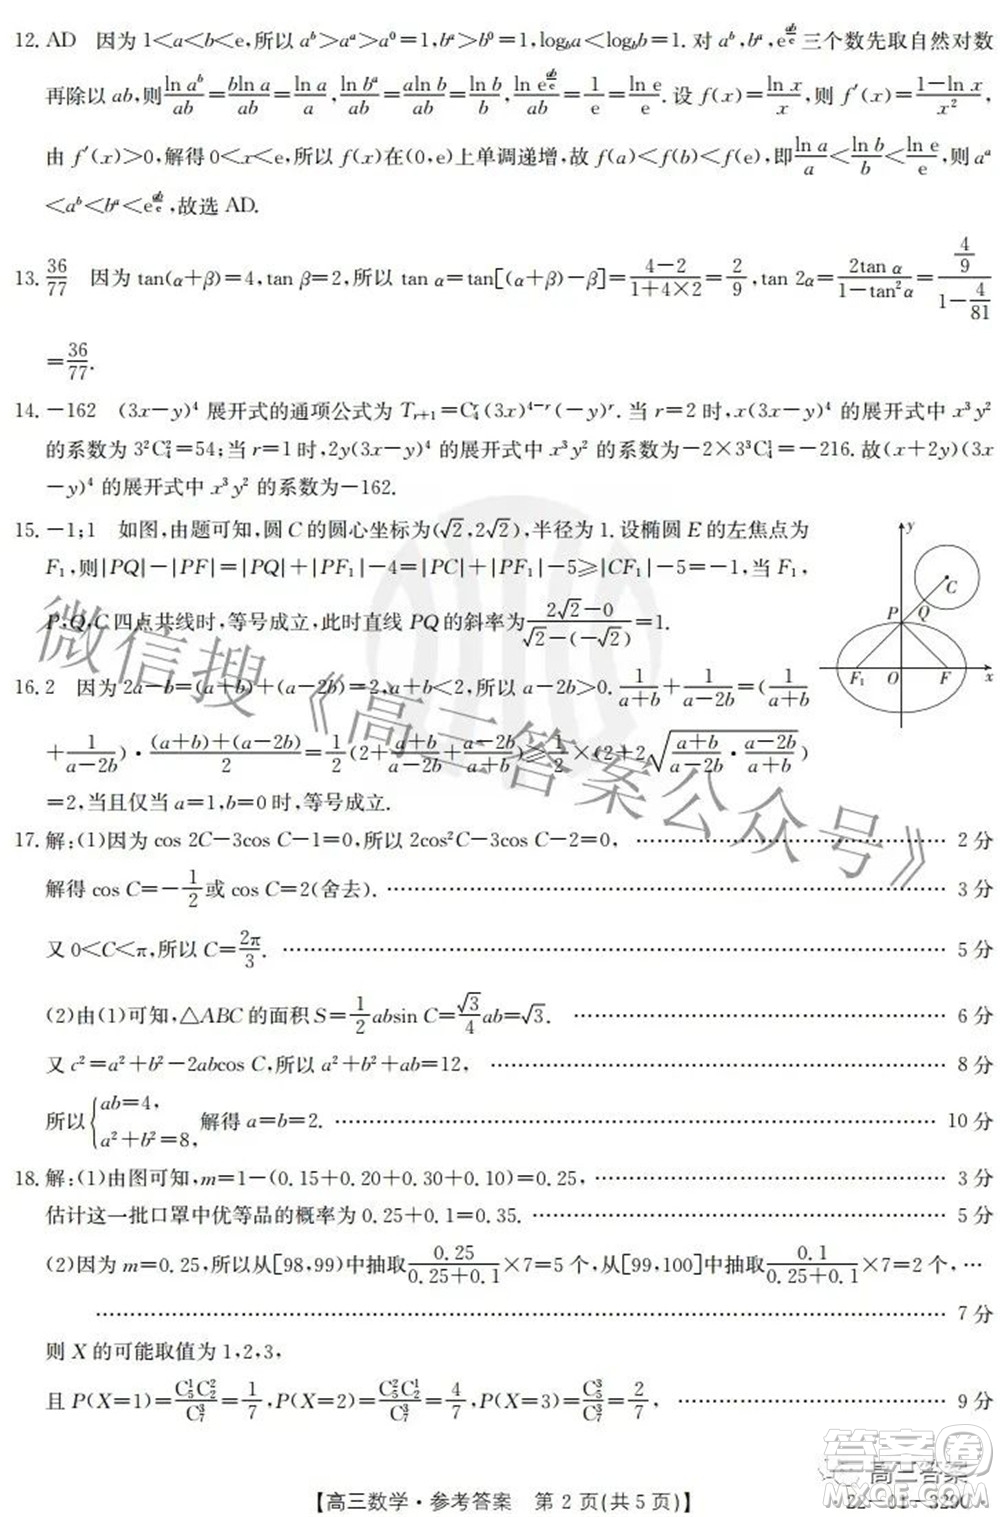 12. AD　因为 1<a<b<e,所以 a^b>a^a>a^0=1,b^a>b^0=1,log_b a<log_b b=1. 对 a^b,b^a,e^{ab/e} 三个数先取自然对数
再除以 ab,则 ln a^b/ab=bln a/ab=ln a/a,ln b^a/ab=aln b/ab=ln b/b,ln e^{ab/e}/ab=1/e=ln e/e. 设 f(x)=ln x/x,则 f′(x)=(1-ln x)/x²,
由 f′(x)>0,解得 0<x<e,所以 f(x)在(0,e)上单调递增,故 f(a)<f(b)<f(e),即 ln a/a<ln b/b<ln e/e,则 a^a
<a^b<b^a<e^{ab/e},故选 AD.
13. 36/77　因为 tan(α+β)=4,tan β=2,所以 tan α=tan[(α+β)-β]=(4-2)/(1+4×2)=2/9,tan 2α=2tan α/(1-tan²α)=(4/9)/(1-4/81)
=36/77.
14. -162　(3x-y)⁴ 展开式的通项公式为 T_{r+1}=C_4^r(3x)^{4-r}(-y)^r. 当 r=2 时,x(3x-y)⁴ 的展开式中 x³y²
的系数为 3²C_4^2=54;当 r=1 时,2y(3x-y)⁴ 的展开式中 x³y² 的系数为-2×3³C_4^1=-216. 故(x+2y)(3x
-y)⁴ 的展开式中 x³y² 的系数为-162.
15. -1;1　如图,由题可知,圆 C 的圆心坐标为(√2,2√2),半径为 1. 设椭圆 E 的左焦点为
F₁,则|PQ|-|PF|=|PQ|+|PF₁|-4=|PC|+|PF₁|-5≥|CF₁|-5=-1,当 F₁,
P,Q,C 四点共线时,等号成立,此时直线 PQ 的斜率为 (2√2-0)/(√2-(-√2))=1.
y
C
P
Q
F₁
O
F
x
16. 2　因为 2a-b=(a+b)+(a-2b)=2,a+b<2,所以 a-2b>0. 1/(a+b)+1/(a-2b)=(1/(a+b)
+1/(a-2b))·((a+b)+(a-2b))/2=1/2(2+(a+b)/(a-2b)+(a-2b)/(a+b))≥1/2×(2+2√((a+b)/(a-2b)·(a-2b)/(a+b)))
=2,当且仅当 a=1,b=0 时,等号成立.
17. 解:(1)因为 cos 2C-3cos C-1=0,所以 2cos²C-3cos C-2=0, …… 2 分
解得 cos C=-1/2 或 cos C=2(舍去). …… 3 分
又 0<C<π,所以 C=2π/3. …… 5 分
(2)由(1)可知,△ABC 的面积 S=1/2 absin C=√3/4 ab=√3. …… 6 分
又 c²=a²+b²-2abcos C,所以 a²+b²+ab=12, …… 8 分
所以 { ab=4, a²+b²=8, 解得 a=b=2. …… 10 分
18. 解:(1)由图可知,m=1-(0.15+0.20+0.30+0.10)=0.25, …… 3 分
估计这一批口罩中优等品的概率为 0.25+0.1=0.35. …… 5 分
(2)因为 m=0.25,所以从[98,99)中抽取 0.25/(0.25+0.1)×7=5 个,从[99,100]中抽取 0.1/(0.25+0.1)×7=2 个, …
…… 7 分
则 X 的可能取值为 1,2,3,
且 P(X=1)=C_5^1C_2^2/C_7^3=1/7,P(X=2)=C_5^2C_2^1/C_7^3=4/7,P(X=3)=C_5^3/C_7^3=2/7, …… 9 分
【高三数学·参考答案　第 2 页(共 5 页)】
微信搜《高三答案公众号》
高三答案
答案圈